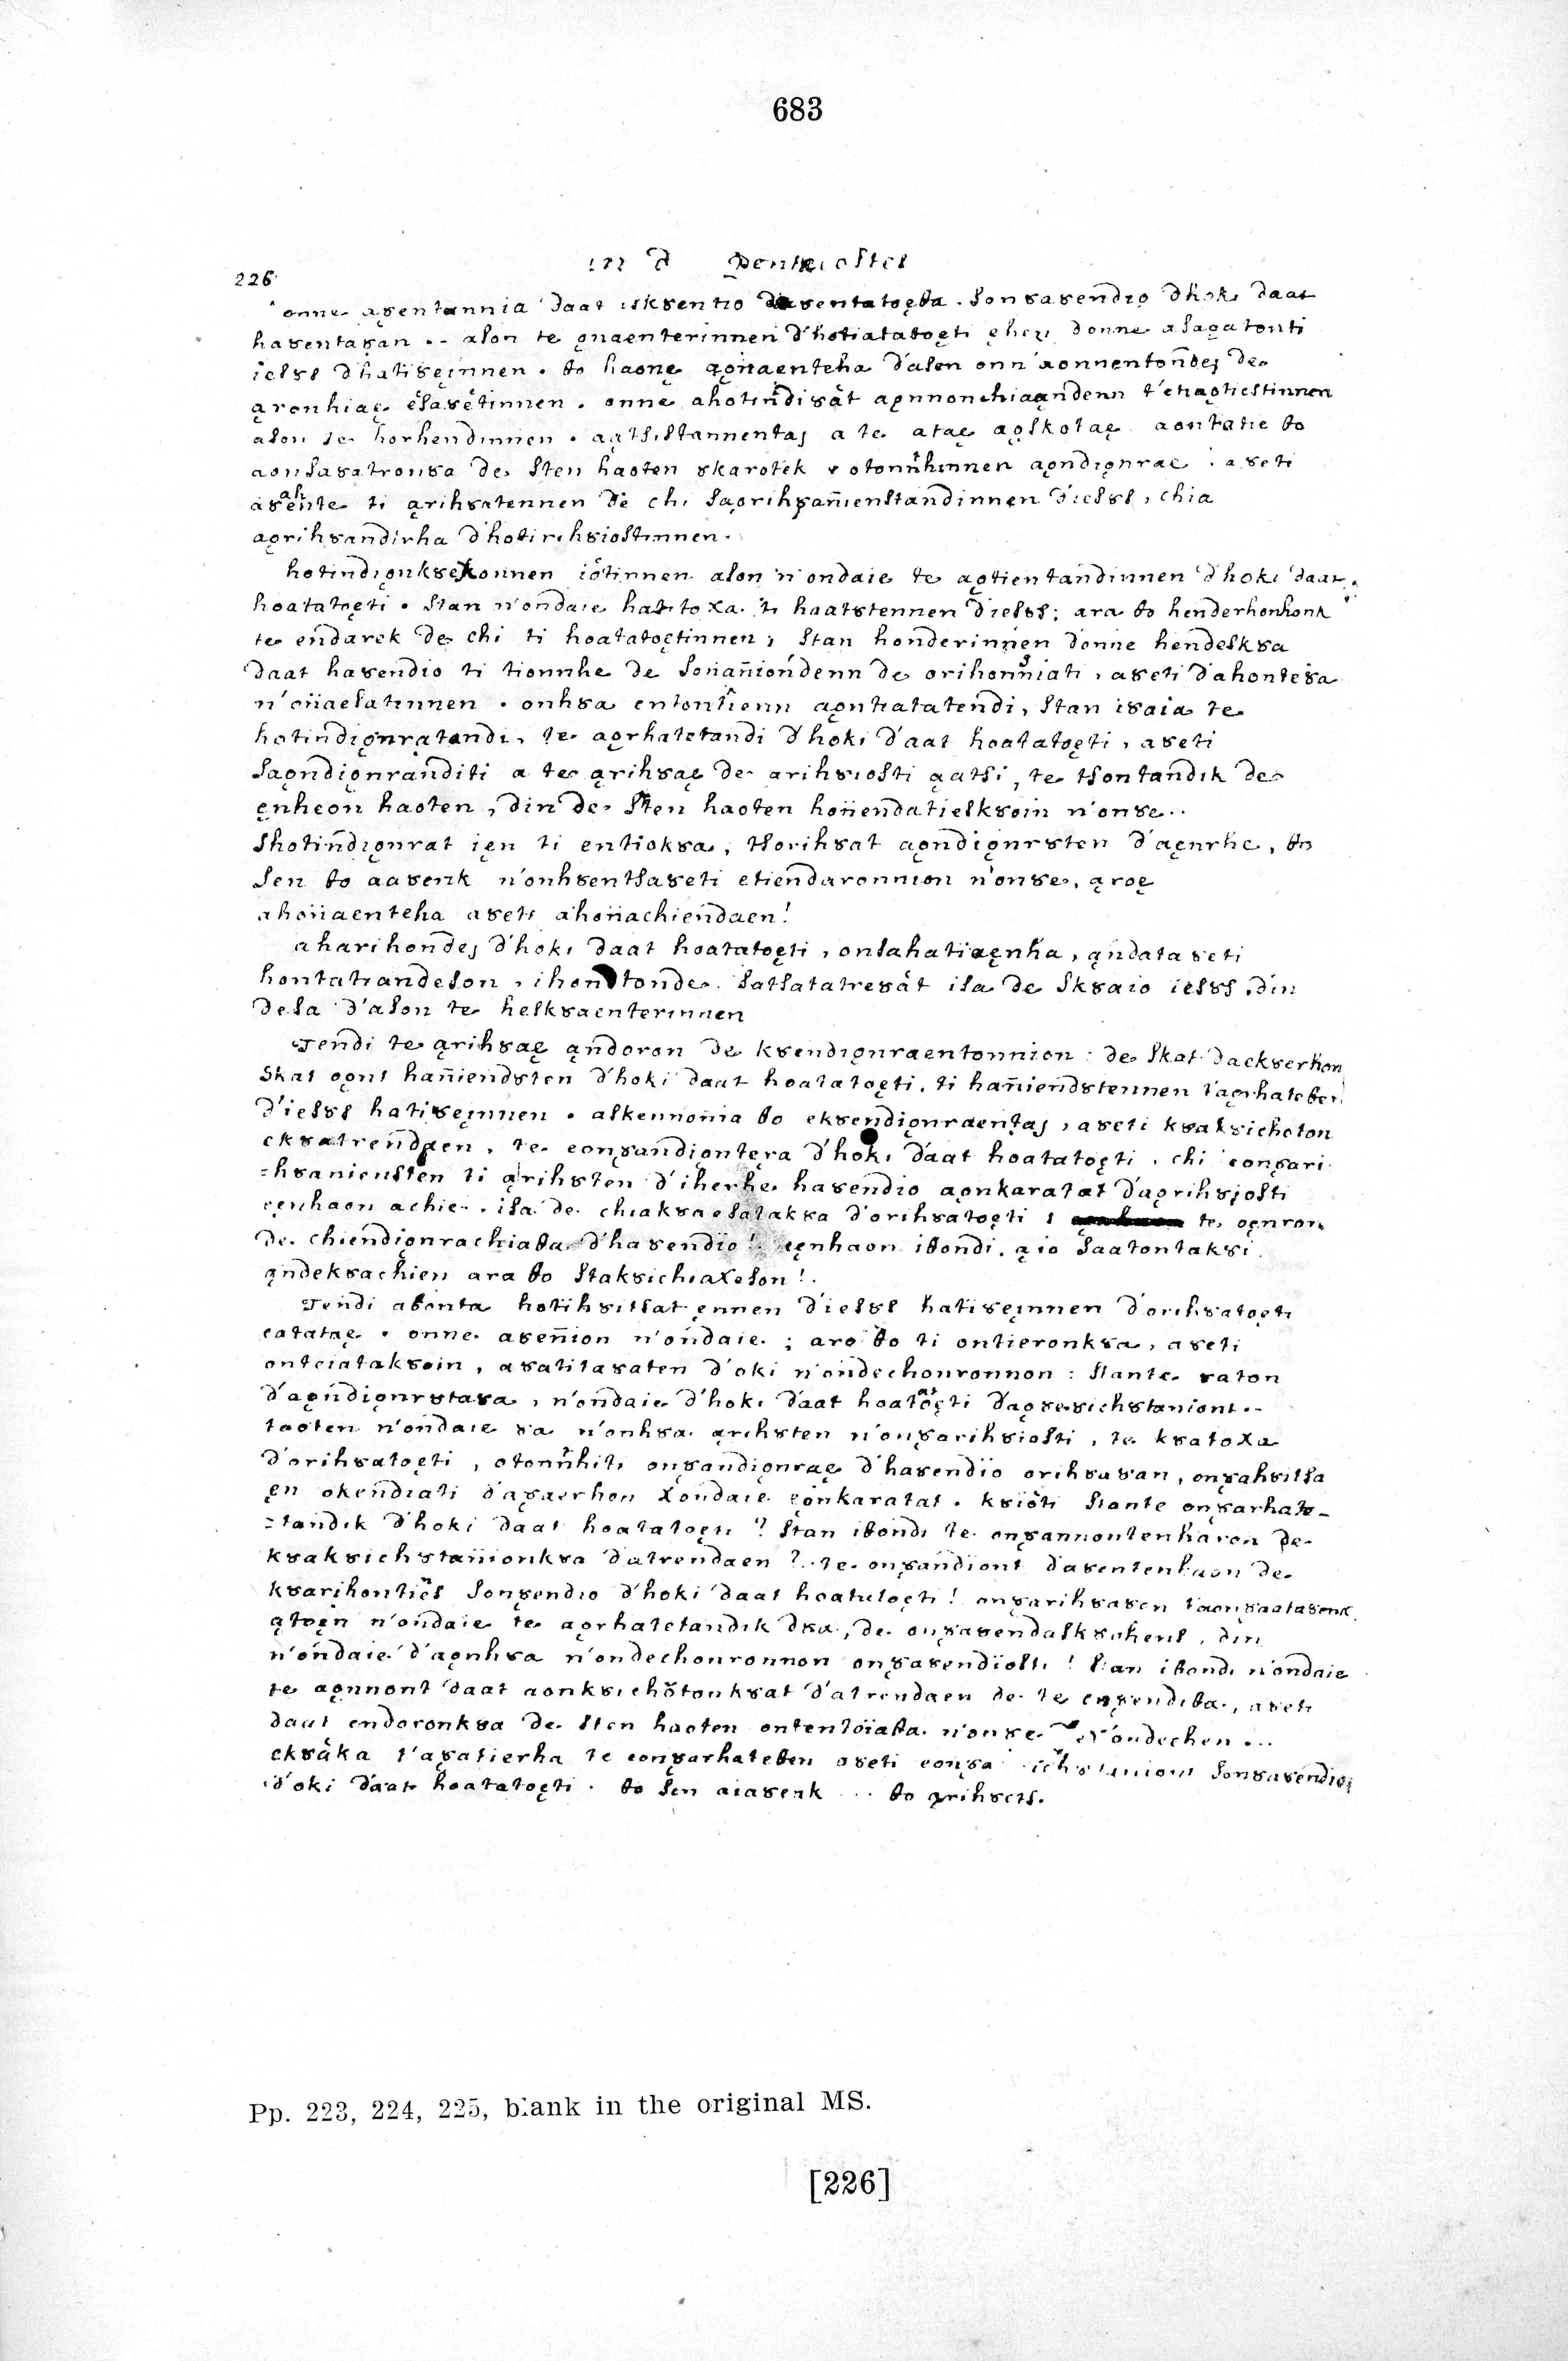 683
226
in d Pentecostes
onne aȣentannia daat iskȣentio daȣentatoęθa. sonȣaȣendio dhoki daat
haȣentaȣan .. ason te ǫnaenterinnen d'hotiatatoęti ęhen donne asaǫatonti
iesȣs d'hatiȣęinnen. θo haonę aǫnaenteha d'asen onn'aonnentonde, de
ąronhiaę ësaȣëtinnen. onne ahotindiȣât aęnnonchiaąndenn t'etiaǫtiestinnen
ason te horhendinnen. aątsistannentaj a te ataę aǫskotaę aontatie θo
aonsaȣatronȣa de sten haoten skarotek otonnhinnen aǫndiǫnrae. aȣeti
aȣente ti ąrihȣatennen de chi saǫrihȣanienstandinnen d'iesȣs, chia
aǫrihȣandirha d'hotirihȣiostinnen.
hotindiǫnkȣexonnen iötinnen ason n'ondaie te aǫtientandinnen d'hoki daat
hoatatoęti. stan n'ondaie hatitoxa ti haatstennen d'iesȣs; ara θo henderhonhonk
te endarek de chi ti hoatatoętinnen; stan honderinnen donne hendeskȣa
daat haȣendio ti tionnhe de sonanionidenn de orihonniati, aȣeti d'ahonteȣa
n'onaesatinnen. onhȣa entontienn aǫntiatatendi, stan isaia te
hotindiǫnrątandi, te aǫrhatetandi d'hoki d'aat hoatatoęti, aȣeti
saǫndiǫnranditi a te ąrihȣaę de arihȣiosti ąatsi, te tsontandik de
ęnheon haoten, din de sten haoten honendatieskȣoin n'onȣe..
shotindiǫnrat ięn ti entiokȣa, tsorihȣat aǫndiǫnrȣsten d'aęnrhe, θo
sen θo aaȣenk n'onhȣentsaȣeti etiendaronnion n'onȣe, ąroę
ahonaenteha aȣeti ahonachiendaen!
aharihondej d'hoki daat hoatatoęti, onsahatiaęnha, ąndataȣeti
hontatiandeson, ihontonde satsatatreȣât isa de skȣaio iesȣs, din
desa d'ason te heskȣaenterinnen
Jendi te ąrihȣaę ąndoron de kȣendiǫnraentonnion: de skat daekȣerhon
skat ǫǫnt haniendȣten d'hoki daat hoatatoęti, ti haniendȣtennen taǫrhateθen
d'iesȣs hatiȣęinnen. askennonia θo ekȣendiǫnraentaj, aȣeti kȣakȣichoton
ekȣatrendaen, te eonȣandiǫntęra d'hoki daat hoatatoęti. chi eonȣari
=hȣaniensten ti ąrihȣten d'iherhe haȣendio aǫnkaratat d'aǫrihȣiosti
eęnhaon achie. isa de chiakȣaesatakȣa d'orihȣatoęti te oęnron
de chiendiǫnrachiaθa d'haȣendio! eęnhaon iθondi. ąio saatontakȣi
ąndekȣachien ara θo stakȣichiaxeson!
Jendi aθonta hotihȣitsatęnnen d'iesȣs hatiȣęinnen d'orihȣatoęti
eatataę. onne aȣenion n'ondaie; aro θo ti ontieronkȣa, aȣeti
onteiatakȣoin, aȣatitaȣaten d'oki n'ondechonronnon: stante ȣaton
d'aǫndiǫnrȣtaȣa, n'ondaie d'hoki daat hoatatoęti d'aǫȣeȣichȣtaniont..
taoten n'ondaie ȣa n'onhȣa ąrihȣten n'onȣarihȣiosti, te kȣatoxa
d'orihȣatoęti, otonnhiti onȣandiǫnraę d'haȣendio orihȣaȣan, onȣahȣitsa
ęn okendiati d'aȣaerhon xondaie eǫnkaratat. kȣiöti stante onȣarhate-
=tandik d'hoki daat hoatatoęti? stan iθondi te onȣannontenharon de
kȣakȣichȣtanionkȣa d'atrendaen? te onȣandiont d'aȣentenhaon de
kȣarihontiës sonȣendio d'hoki daat hoatatoęti! onȣarihȣaȣen taonȣaataȣenk
ątoęn n'ondaie te aǫrhatetandik dȣa, de onȣaȣendaskȣahens, din
n'ondaie d'aǫnhȣa n'ondechonronnon onȣaȣendiosti! stan iθondi n'ondaie
te aǫnnont daat aonkȣichötonkȣat d'atrendaen de te enȣendiθa, aȣeti
daat endoronkȣa de sten haoten ontentoiaθa n'onȣe n'ondechen...
ekȣâka t'aȣatierha te eonȣarhateθen aȣeti eonȣa ichȣtaniont sonȣaȣendio
d'oki daat hoatatoęti. θo sen aiaȣenk ... θo ąrihȣets.
Pp. 223, 224, 225, blank in the original MS.
[226]